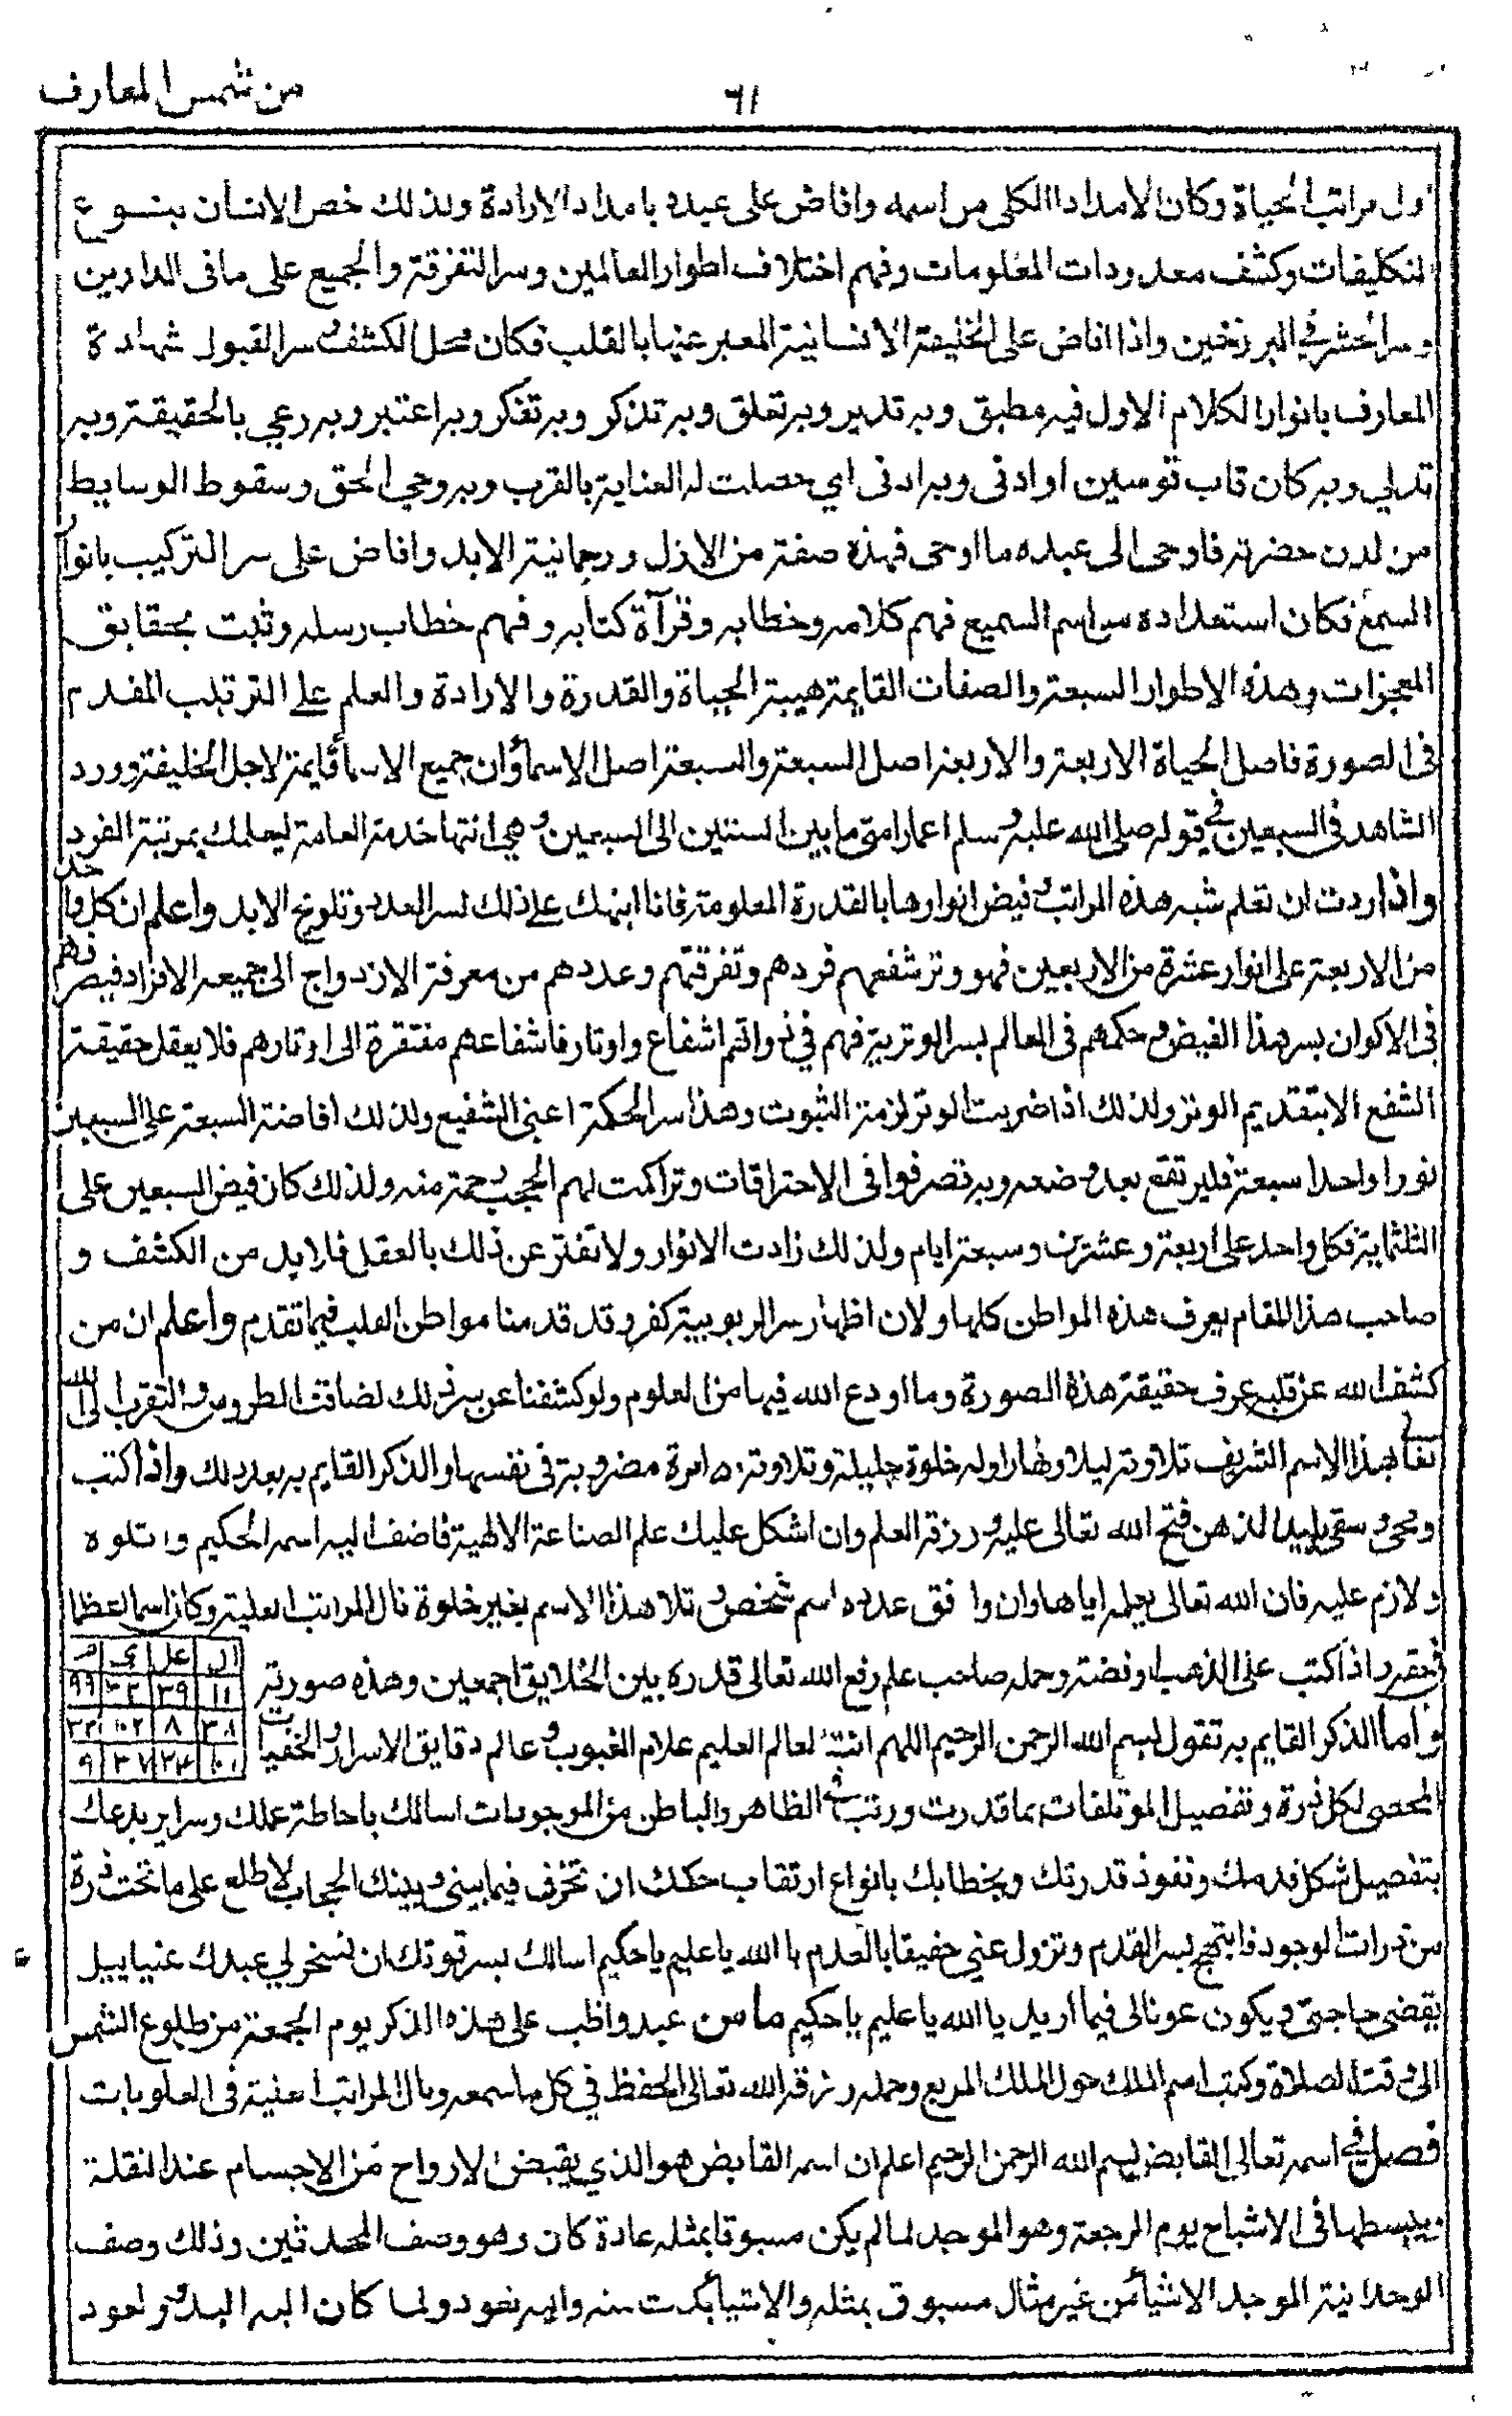 من شمس المعارف
٦١
اول مراتب الحياة وكان الامداد الكلى من اسمه وافاض على عبده بامداد الارادة ولذلك خص الانسان بنسوع
لتكليفات وكشف معدودات المعلومات وفهم اختلاف اطوار العالمين وسر التفرقة والجميع على ما فى الدارين
وسر الحشر في البرزخين واذا افاض على الخليفة الانسانية المعبر عنها بالقلب فكان محل الكشف وسر القبول شهادة
المعارف بانوار الكلام الاول فيه مطبق وبه تدبر وبه تعلق وبه تذكر وبه تفكر وبه اعتبر وبه رعي بالحقيقة وبه
تدلي وبه كان قاب قوسين او ادنى وبه ادنى اي حصلت له العناية بالقرب وبه وحي الحق وسقوط الوسايط
من لدن حضرته فاوحى الى عبده ما اوحى فهذه صفة من الازل ورحمانية الابد وافاض على سر التركيب بانوار
السمع فكان استعداده من اسم السميع فهم كلامه وخطابه وقرآة كتابه وفهم خطاب رسله وثبت بحقايق
المعجزات وهذه الاطوار السبعة والصفات القايمة هيبة الحياة والقدرة والارادة والعلم على الترتيب المقدم
فى الصورة فاصل الحياة الاربعة والاربعة اصل السبعة والسبعة اصل الاسمآ وان جميع الاسمآ قايمة لاجل الخليفة وورد
الشاهد فى السبعين في قوله صلى الله عليه وسلم اعمار امتى ما بين الستين الى السبعين وهي انتها خدمة العامة ليعلمك بمرتبة الفرد
واذا اردت ان تعلم شبه هذه المراتب وفيض انوارها بالقدرة المعلومة فانا انبهك على ذلك لسر العدد وتلويح الابد واعلم ان كل واحد
من الاربعة على انوار عشرة من الاربعين فهو وتر شفعهم فردهم وتفرقتهم وعددهم من معرفة الازدواج الى جميعه الافراد فيصرفهم
فى الاكوان بسر هذا الفيض وحكمهم فى العالم بسر الوترية فهم في ذواتهم اشفاع واوتار فاشفاعهم مفتقرة الى اوتارهم فلا يعقل حقيقة
الشفع الا بتقديم الوتر ولذلك اذا ضربت الوتر لزمته الثبوت وهذا سر الحكمة اعنى الشفيع ولذلك افاضة السبعة على السبعين
نورا واحدا سبعة فلير تقع بعد وضعه وبه تصرفوا فى الاحتراقات وتراكمت لهم الحجب رحمة منه ولذلك كان فيض السبعين على
الثلثماية فكل واحد على اربعة وعشرين وسبعة ايام ولذلك زادت الانوار ولا تفتر عن ذلك بالعقل فلا بد من الكشف و
صاحب هذا المقام يعرف هذه المواطن كلها ولان اظهار سر الربوبية كفر وقد قدمنا مواطن القلب فيما تقدم واعلم ان من
كشف الله عن قلبه عرف حقيقة هذه الصورة وما اودع الله فيها من العلوم ولو كشفنا عن سر ذلك لضاقت الطروس والتقرب الى الله
تعالى بهذا الاسم الشريف تلاوته ليلا ونهارا وله خلوة جليلة وتلاوته مرة مضروبة فى نفسها والذكر القايم به بعد ذلك واذا كتب
ومحى وسقى لبليد الذهن فتح الله تعالى عليه ورزقه العلم وان اشكل عليك علم الصناعة الالهية فاضف اليه اسمه الحكيم واتلوه
ولازم عليه فان الله تعالى يعلمه اياها وان وافق عدده اسم شخص وتلا هذا الاسم بغير خلوة نال المراتب العلية وكان اسما عظما
فى حقه واذا كتب على الذهب او فضة وحمله صاحب علم رفع الله تعالى قدره بين الخلايق اجمعين وهذه صورته
ال عل ي م
١١ ٣٩ ٣٢ ٩٩
٣٨ ٨ ١٠٢ ٣٣
١٠١ ٣٤ ٣٧ ٩
واما الذكر القايم به تقول بسم الله الرحمن الرحيم اللهم انت العالم العليم علام الغيوب وعالم دقايق الاسرار والخفيات
المحصى لكل ذرة وتفصيل المؤتلفات بما قدرت ورتبت الظاهر والباطن من الموجودات اسالك باحاطة علمك وسراير بدعك
بتفصيل شكل قدمك ونفوذ قدرتك وبخطابك بانواع ارتقاب حكمك ان تخرق فيما بينى وبينك الحجاب لاطلع على ما تحت ذرة
من ذرات الوجود فابتهج بسر القدم وتزول عني حقيقا بالعدم يا الله يا عليم يا حكيم اسالك بسر قوتك ان تسخر لي عبدك عنياييل
يقضى حاجتى ويكون عونا لى فيما اريد يا الله يا عليم يا حكيم ما من عبد واظب على هذه الذكر يوم الجمعة من طلوع الشمس
الى وقت الصلاة وكتب اسم الملك حول الملك المربع وحمله رزقه الله تعالى الحفظ في كل ما سمعه ونال المراتب العلية فى العلويات
فصل في اسمه تعالى القابض بسم الله الرحمن الرحيم اعلم ان اسمه القابض هو الذي يقبض الارواح من الاجسام عند النقلة
ويبسطها فى الاشباح يوم الرجعة وهو الموجد لما لم يكن مسبوقا بمثله عادة كان وهو وصف المحدثين وذلك وصف
الوحدانية الموجد الاشيآ من غير مثال مسبوق بمثله والاشيآ بدت منه واليه تعود ولما كان اليه البدؤ والعود